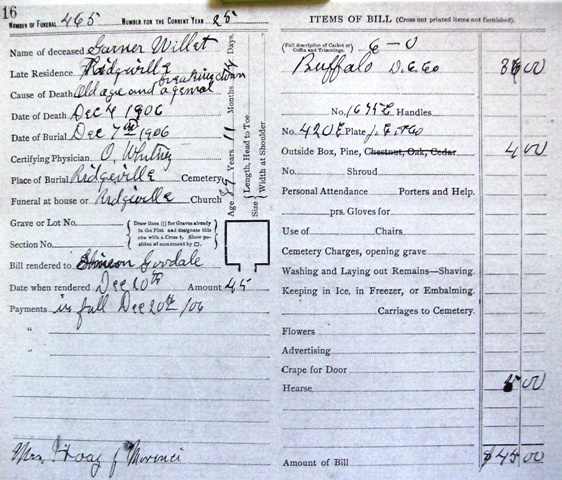 16
NUMBER OF FUNERAL 465 NUMBER FOR THE CURRENT YEAR 25
Name of deceased Garner Willet
Late Residence, Ridgeville
Cause of Death Old age and a general breaking down
Date of Death Dec 4 1906
Date of Burial Dec 7th 1906
Certifying Physician O. Whitney
Place of Burial Ridgeville Cemetery
Funeral at house or Ridgeville Church
Age Years 11 Months Days.
Size { Length, Head to Toe
Width at Shoulder
Grave or Lot No.
Section No.
Draw lines ||| for Graves already in the Plot and designate this one with a Cross †. Show position of monument by □.
Bill rendered to Simeon Goodale
Date when rendered Dec 20th Amount 45
Payments in full Dec 20th /06
"
"
Mrs. Hoag of Morenci
ITEMS OF BILL (Cross out printed items not furnished).
(Full description of Casket or Coffin and Trimmings.) 6-0
Buffalo D.C. Co 36 00
No. Handles
No. 420 E Plate
Outside Box, Pine, Chestnut, Oak, Cedar 4 00
No. Shroud
Personal Attendance Porters and Help.
prs. Gloves for
Use of Chairs
Cemetery Charges, opening grave
Washing and Laying out Remains—Shaving.
Keeping in Ice, in Freezer, or Embalming.
Carriages to Cemetery.
Flowers
Advertising
Crape for Door
Hearse 5 00
Amount of Bill $45 00